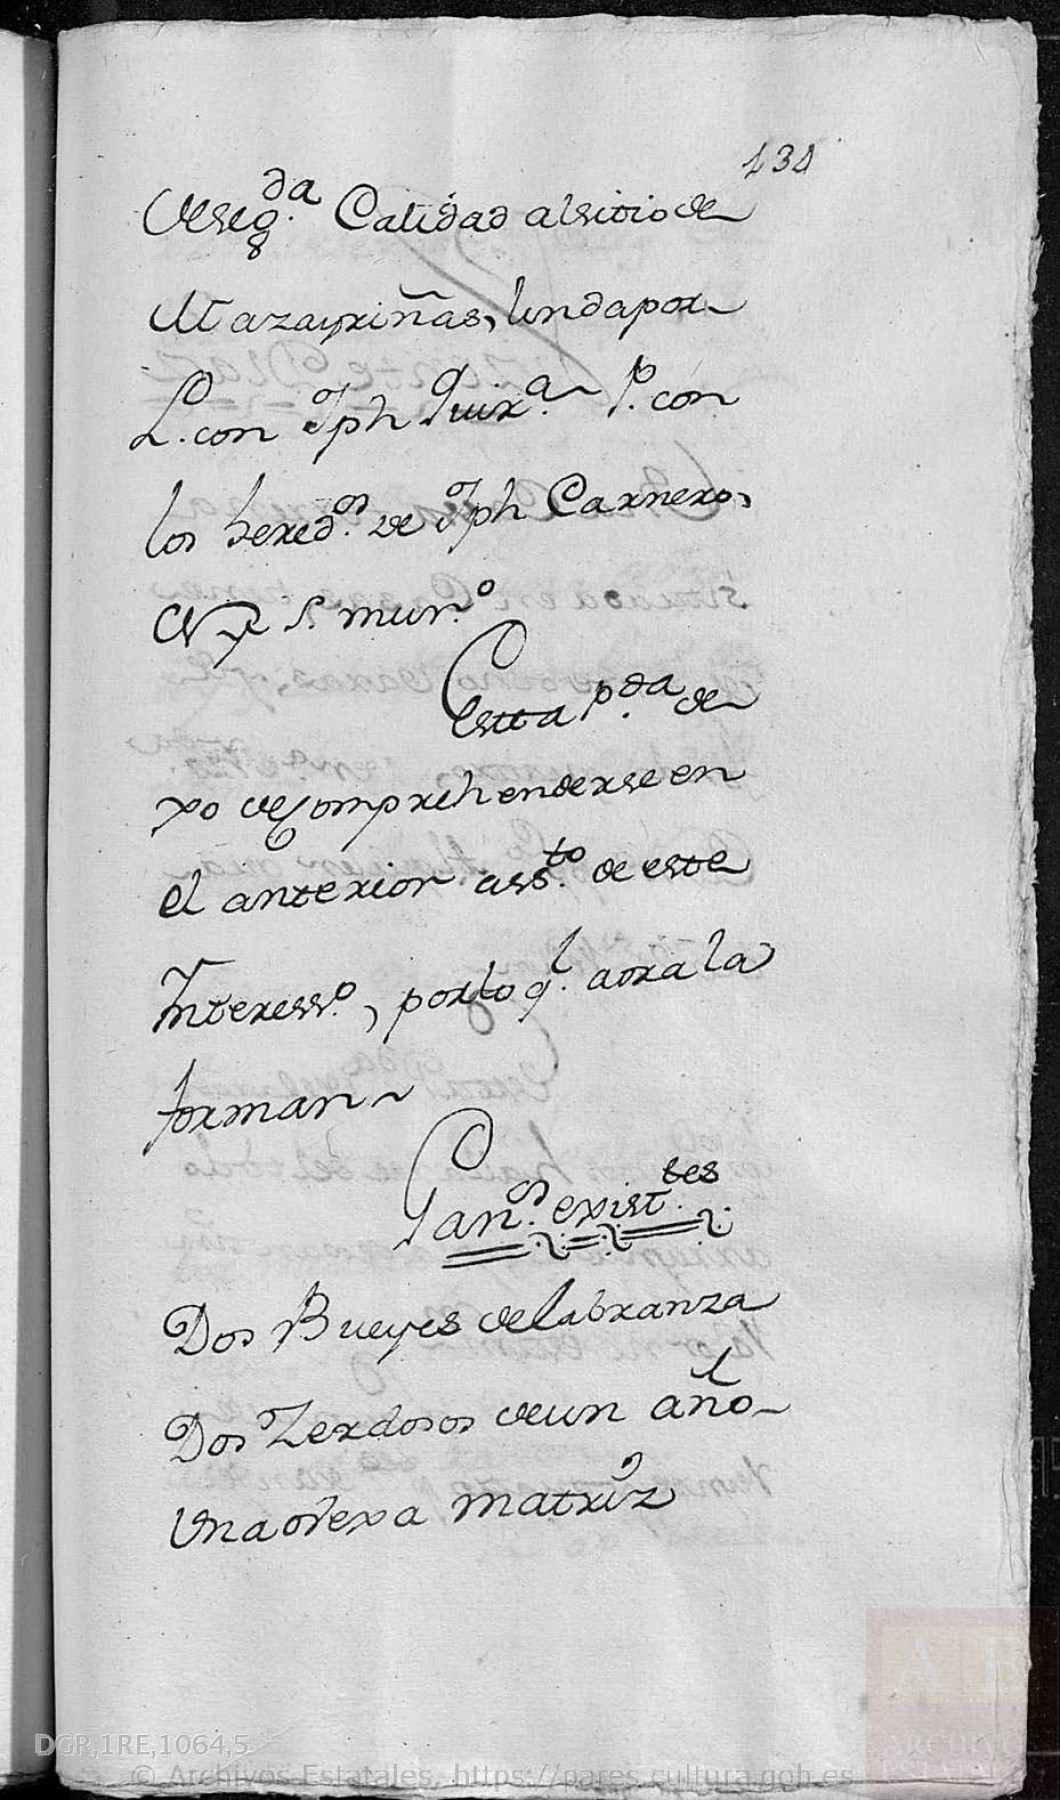 434
de seg.da Calidad al sitio de
Mazayriñas, linda por
L. con Jph Quir.a P. con
los hered.os de Jph Carnero,
N y S. mur.o
Estta p.da de
xo de Comprehenderse en
el anterior ass.to de este
Interess.o, por lo q.l aora la
forman
Gan.os exist.tes
Dos Bueyes de labranza
Dos Zerdosos de un año
Una obexa matriz
DGR,1RE,1064,5
© Archivos Estatales, https://pares.cultura.gob.es